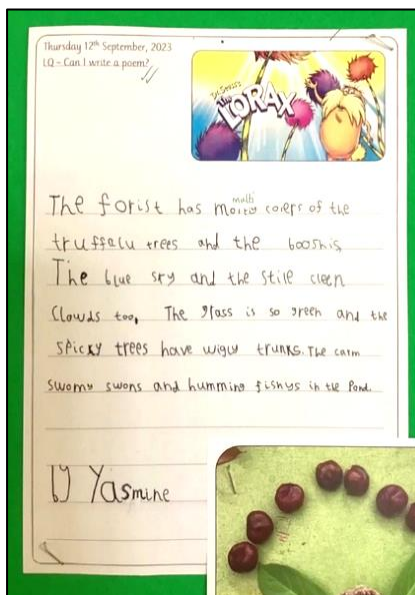 Thursday 12th September, 2023
LQ – Can I write a poem?
Dr. Seuss'
The LORAX
The forist has molty colers of the
multi
truffalu trees and the booshis
The blue sky and the stile cleen
Clowds too, The grass is so green and the
spicky trees have wiguy trunks. The carm
swomy swons and humming fishys in the Pond.
by Yasmine